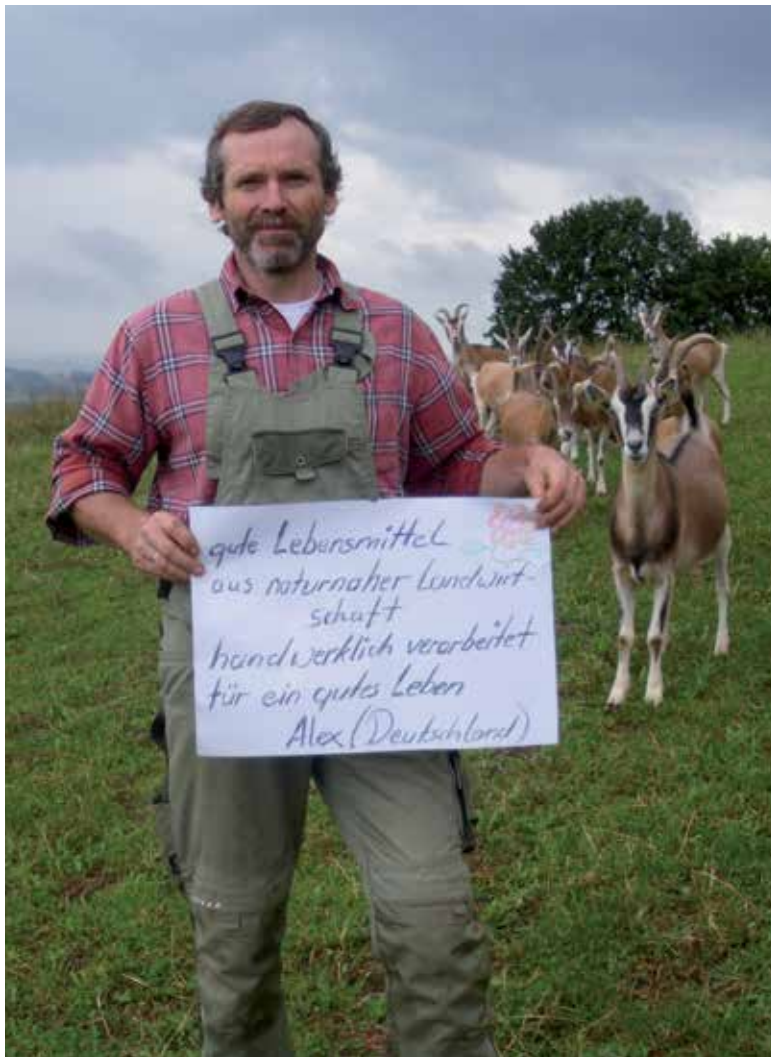 gute Lebensmittel
aus naturnaher Landwirt-
schaft
handwerklich verarbeitet
für ein gutes Leben
Alex (Deutschland)